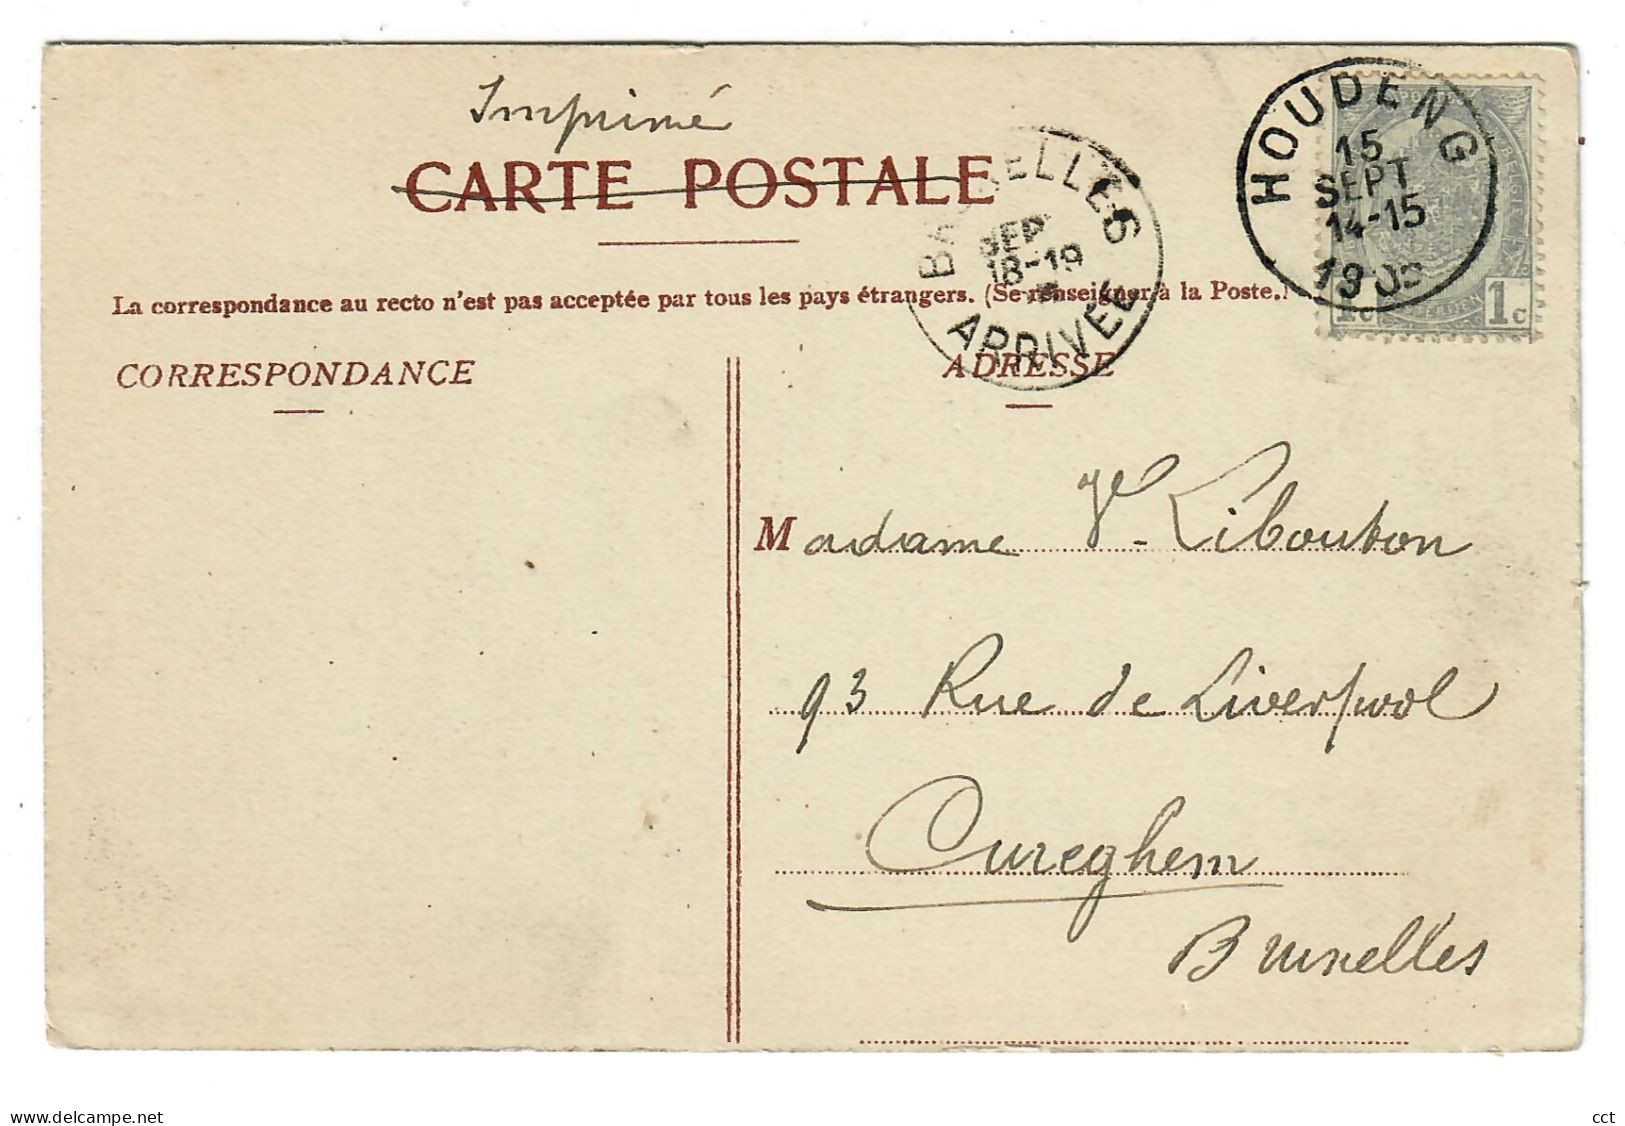 Imprimé
CARTE POSTALE
HOUDENG
15
SEPT
14-15
BRUXELLES
SEPT
18-19
ARRIVÉE
1c
La correspondance au recto n'est pas acceptée par tous les pays étrangers. (Se renseigner à la Poste.)
CORRESPONDANCE
ADRESSE
Madame Ve Libouton
93 Rue de Liverpool
Cureghem
Bruxelles
www.delcampe.net
cct